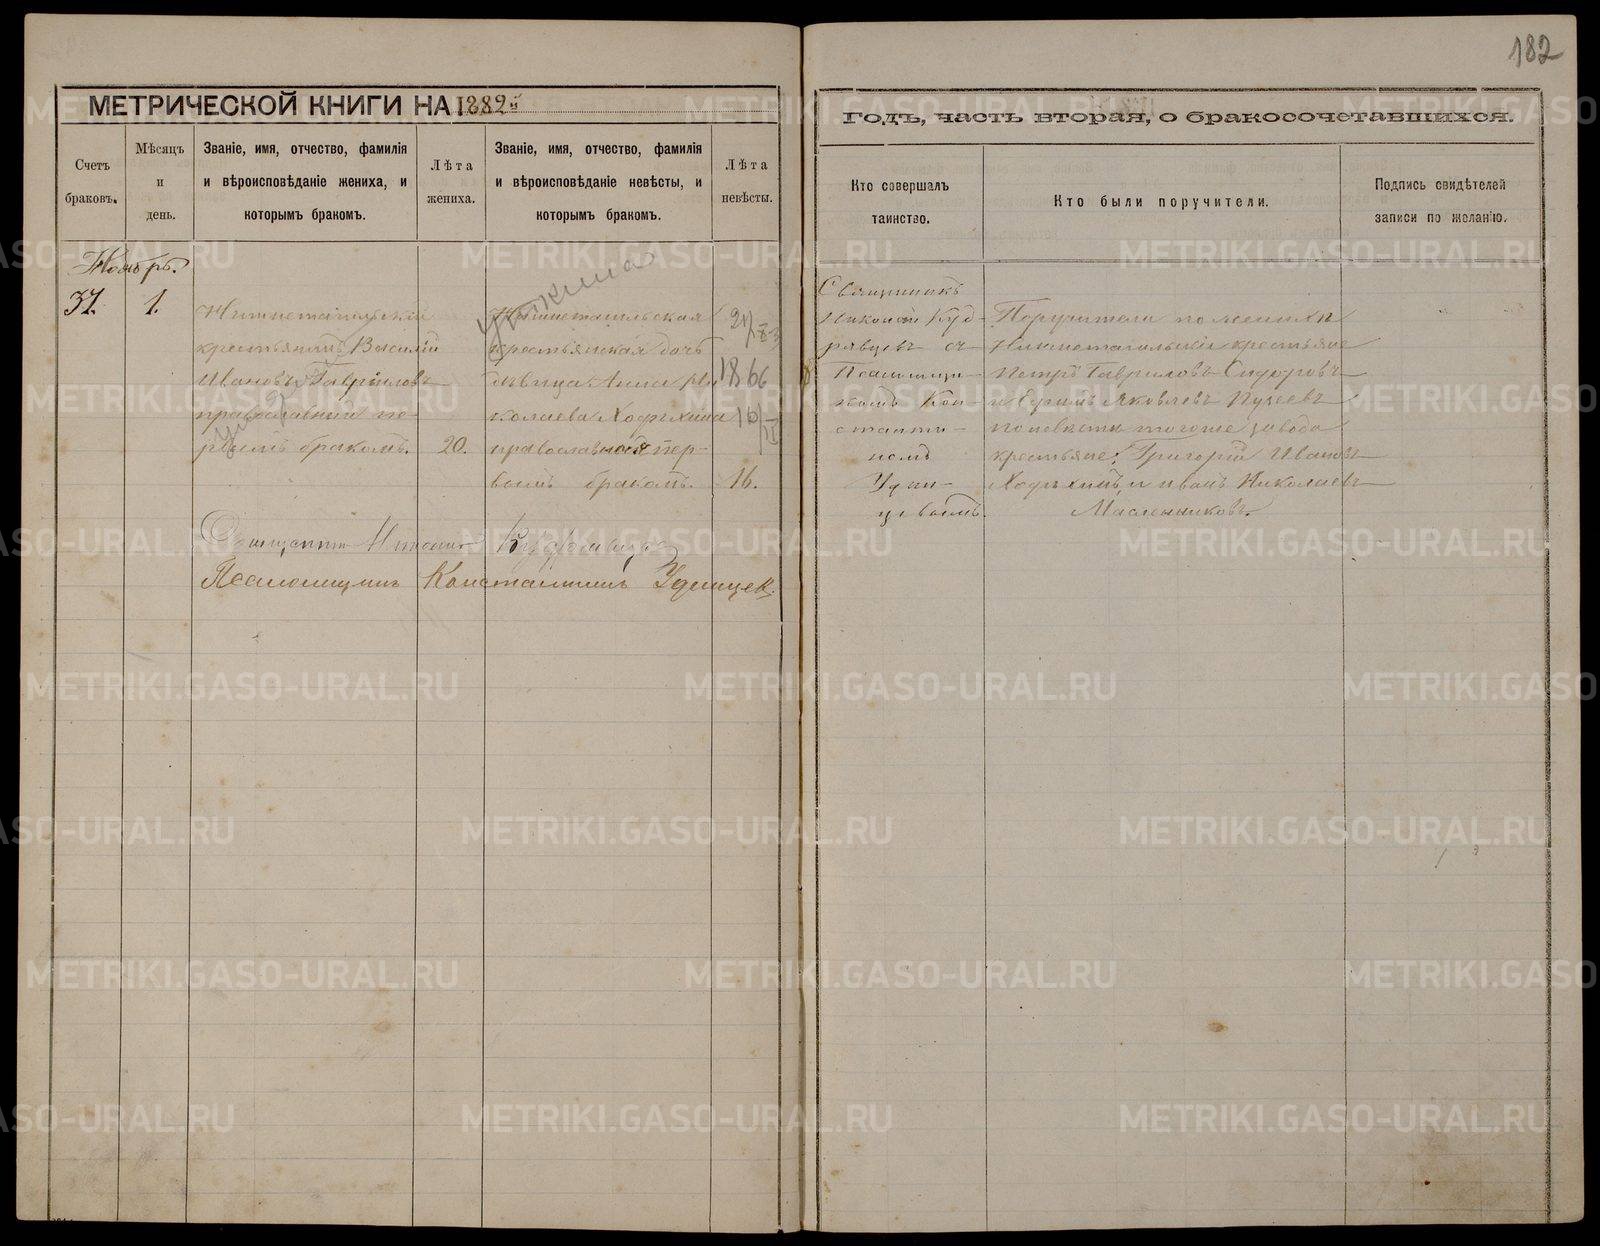 182
МЕТРИЧЕСКОЙ КНИГИ НА 1882й
Счетъ браковъ.
Мѣсяцъ и день.
Званіе, имя, отчество, фамилія и вѣроисповѣданіе жениха, и которымъ бракомъ.
Лѣта жениха.
Званіе, имя, отчество, фамилія и вѣроисповѣданіе невѣсты, и которымъ бракомъ.
Лѣта невѣсты.
Ноябрь.
37.
1.
Нижнетагильскій
крестьянинъ Василій
Ивановъ Гавриловъ
православный пе-
рвымъ бракомъ.
20.
Нижнетагильская
крестьянская дочь
дѣвица Анна Ни
колаева
православная пер-
вымъ бракомъ.
1866
16.
Священникъ Никонъ Кудрявцевъ
Псаломщикъ Константинъ Удинцевъ.
ГОДЪ, ЧАСТЬ ВТОРАЯ, О БРАКОСОЧЕТАВШИХСЯ.
Кто совершалъ таинство.
Кто были поручители.
Подпись свидѣтелей записи по желанію.
Священникъ
Никонъ Куд-
рявцевъ съ
Псаломщи-
комъ Кон-
станти-
номъ
Удин-
цевымъ.
Поручители по женихѣ
Нижнетагильскіе крестьяне
Петръ Гавриловъ Сидоровъ
и Яковлевъ
по невѣстѣ тогоже завода
крестьяне: Григорій Ивановъ
и Иванъ Николаевъ
Масленниковъ.
METRIKI.GASO-URAL.RU